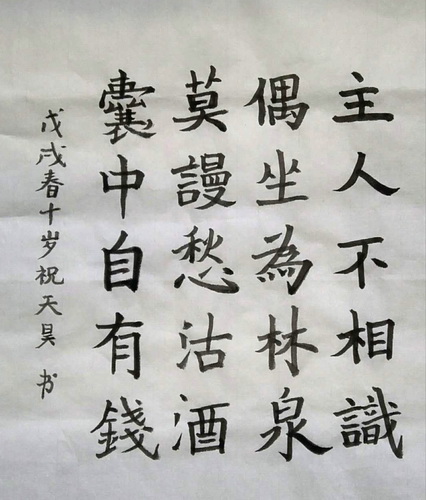 主人不相識
偶坐為林泉
莫謾愁沽酒
囊中自有錢
戊戌春十岁祝天昊 书